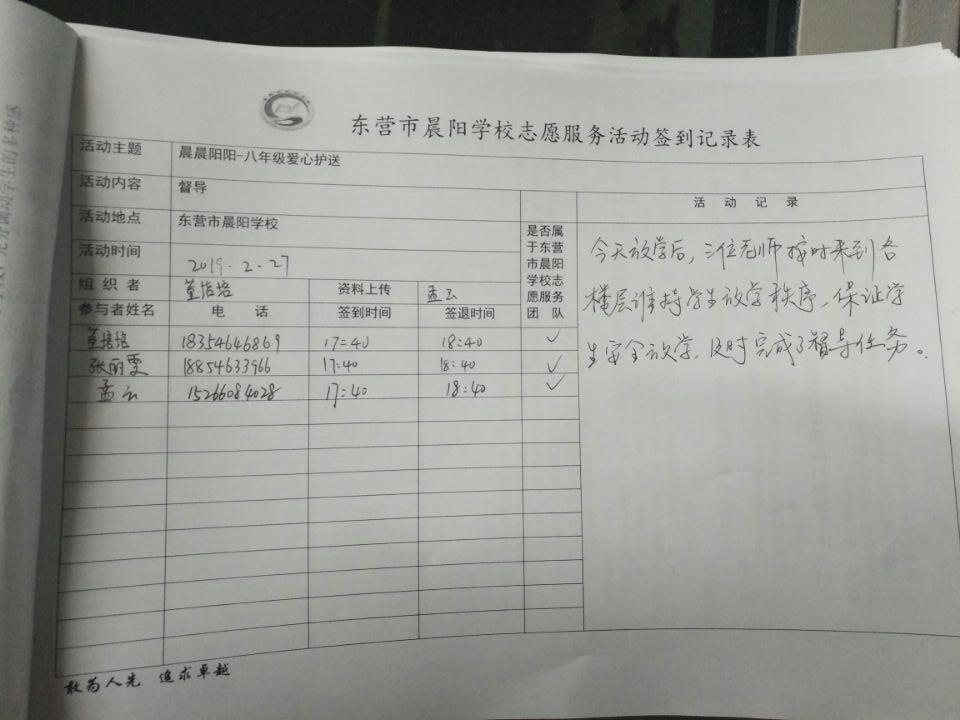 东营市晨阳学校志愿服务活动签到记录表
活动主题 晨晨阳阳-八年级爱心护送
活动内容 督导
活动地点 东营市晨阳学校
活动时间 2019.2.27
组织者 董培培 资料上传 孟云
参与者姓名 电话 签到时间 签退时间
是否属
于东营
市晨阳
学校志
愿服务
团队
董培培 18354646869 17:40 18:40 ✓
张丽雯 18854633966 17:40 18:40 ✓
孟云 15266084028 17:40 18:40 ✓
活动记录
今天放学后,三位老师按时来到各
楼层维持学生放学秩序,保证学
生安全放学,及时完成了督导任务。
敢为人先 追求卓越